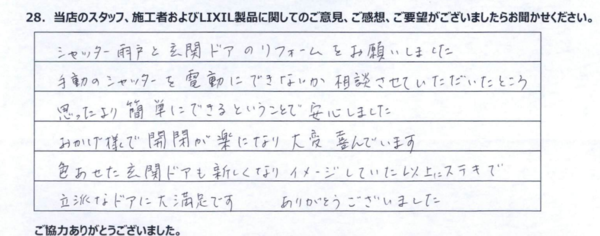 28. 当店のスタッフ、施工者およびLIXIL製品に関してのご意見、ご感想、ご要望がございましたらお聞かせください。
シャッター雨戸と玄関ドアのリフォームをお願いしました
手動のシャッターを電動にできないか相談させていただいたところ
思ったより簡単にできるということで安心しました
おかげ様で開閉が楽になり大変喜んでいます
色あせた玄関ドアも新しくなりイメージしていた以上にステキで
立派なドアに大満足です ありがとうございました
ご協力ありがとうございました。